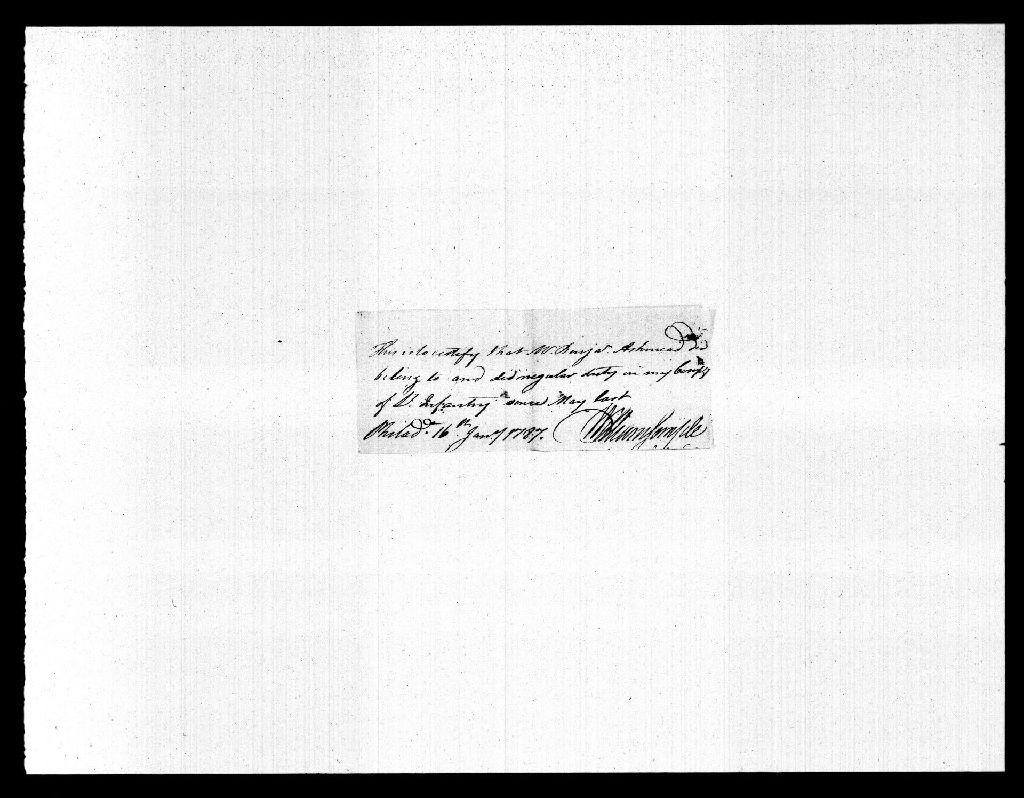 This is to certify that Mr. Benja. Ashmead Do
belong to and did regular duty in my Compy
of Lt. Infantry since May last
Philada. 16th Jany 1787. William Semple